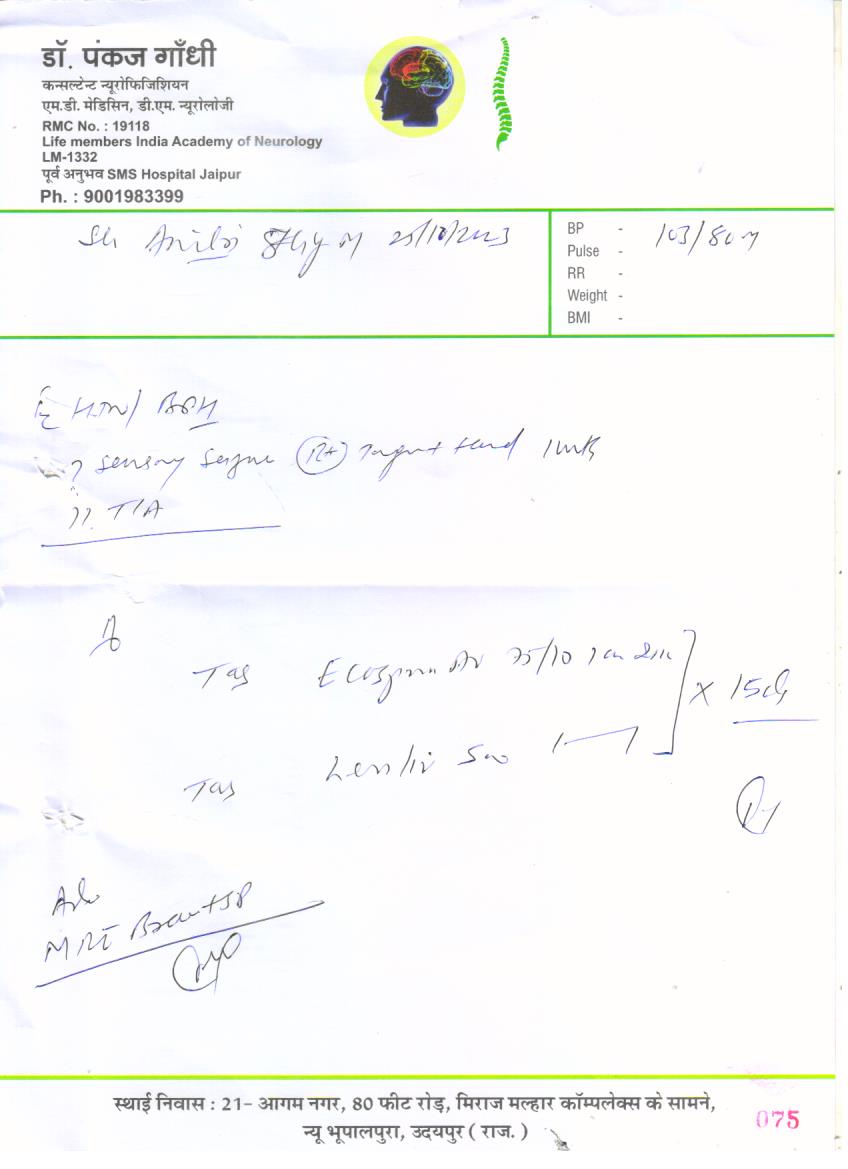 डॉ. पंकज गाँधी
कन्सल्टेन्ट न्यूरोफिजिशियन
एम.डी. मेडिसिन, डी.एम. न्यूरोलोजी
RMC No. : 19118
Life members India Academy of Neurology
LM-1332
पूर्व अनुभव SMS Hospital Jaipur
Ph. : 9001983399
25/10/2023
BP - 103/80
Pulse -
RR -
Weight -
BMI -
HTN/ BPH
? Sensory (Rt) hand 1 wk
?? TIA
Tab Ecosprin AV 75/10 x 15d
Tab 500 1
Adv
MRI Brain
स्थाई निवास : 21- आगम नगर, 80 फीट रोड़, मिराज मल्हार कॉम्पलेक्स के सामने,
न्यू भूपालपुरा, उदयपुर ( राज. )
075